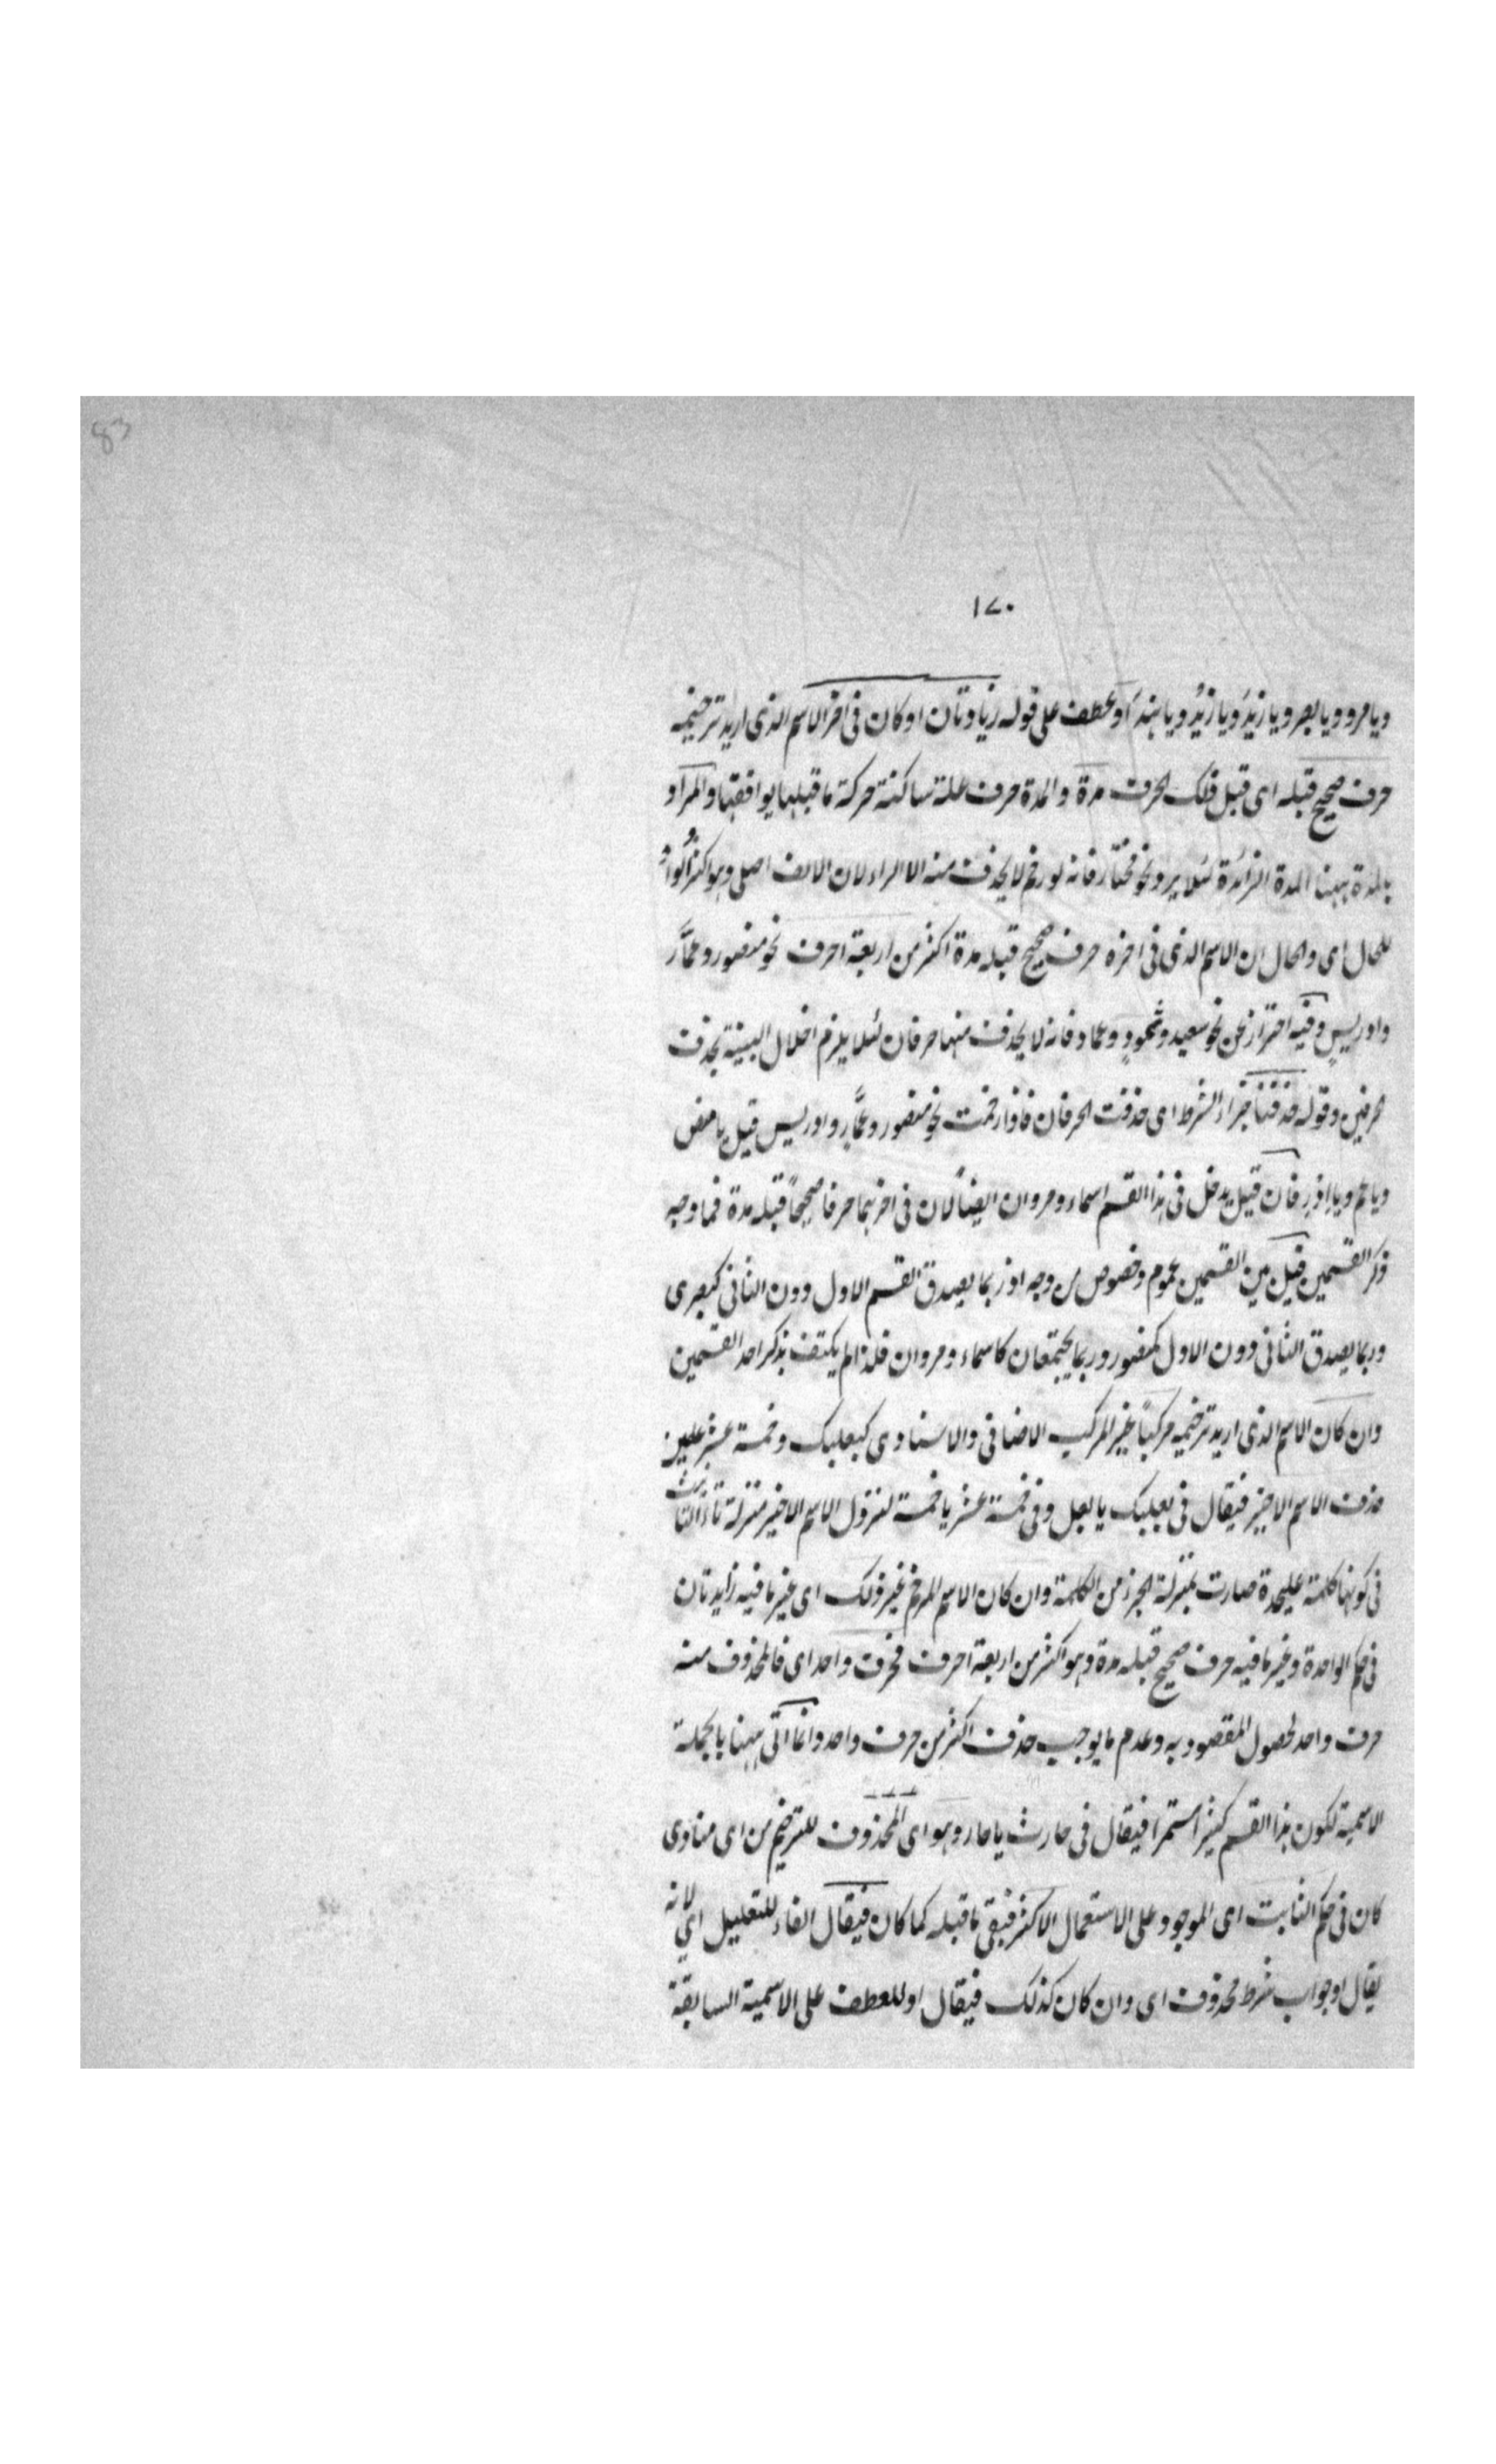 83
١٧٠
ويا مرو ويا بصر ويا زيدَ ويا زيدُ ويا هندَ او عطف على قوله زيادتان او كان فى اخر الاسم الذى اريد ترخيمه
حرف صحيح قبله اى قبل ذلك الحرف مدة والمدة حرف علة ساكنة حركة ما قبلها يوافقها والمراد
بالمدة ههنا المدة الزائدة لئلا يرد نحو مختار فانه لو رخم لا يحذف منه الا الراء لان الالف اصلى وهو اكثر الواو
للحال اى والحال ان الاسم الذى فى اخره حرف صحيح قبله مدة اكثر من اربعة احرف نحو منصور وعمّار
وادريس وفيه احتراز عن نحو سعيد وثمود وعماد فانه لا يحذف منها حرفان لئلا يلزم اخلال البنية بحذف
الحرفين وقوله حذفتا جزاء الشرط اى حذفت الحرفان فاذا رخمت نحو منصور وعمّار وادريس قيل يا منص
ويا عم ويا ادر فان قيل يدخل فى هذا القسم اسماء ومروان ايضاً لان فى اخرهما حرفا صحيحاً قبله مدة فما وجه
ذكر القسمين قيل بين القسمين عموم وخصوص من وجه اذ ربما يصدق القسم الاول دون الثانى كبصرى
وربما يصدق الثانى دون الاول كمنصور وربما يجتمعان كاسماء ومروان فلذا لم يكتف بذكر احد القسمين
وان كان الاسم الذى اريد ترخيمه مركباً غير المركب الاضافى والاسنادى كبعلبك وخمسة عشر علمين
حذف الاسم الاخير فيقال فى بعلبك يا بعل وفى خمسة عشر يا خمسة لنزول الاسم الاخير منزلة تاء التانيث
فى كونها كلمة عليحدة صارت بمنزلة الجزء من الكلمة وان كان الاسم المرخم غير ذلك اى غير ما فيه زايدتان
فى حكم الواحدة وغير ما فيه حرف صحيح قبله مدة وهو اكثر من اربعة احرف فحرف واحد اى فالمحذوف منه
حرف واحد لحصول المقصود به وعدم ما يوجب حذف اكثر من حرف واحد وانما اتى ههنا بالجملة
الاسمية لكون هذا القسم كثيرا مستمرا فيقال فى حارث يا حار وهو اى المحذوف للترخيم من اى منادى
كان فى حكم الثابت اى الموجود على الاستعمال الاكثر فيبقى ما قبله كما كان فيقال الفاء للتعليل اى لانه
يقال او جواب شرط محذوف اى وان كان كذلك فيقال او للعطف على الاسمية السابقة